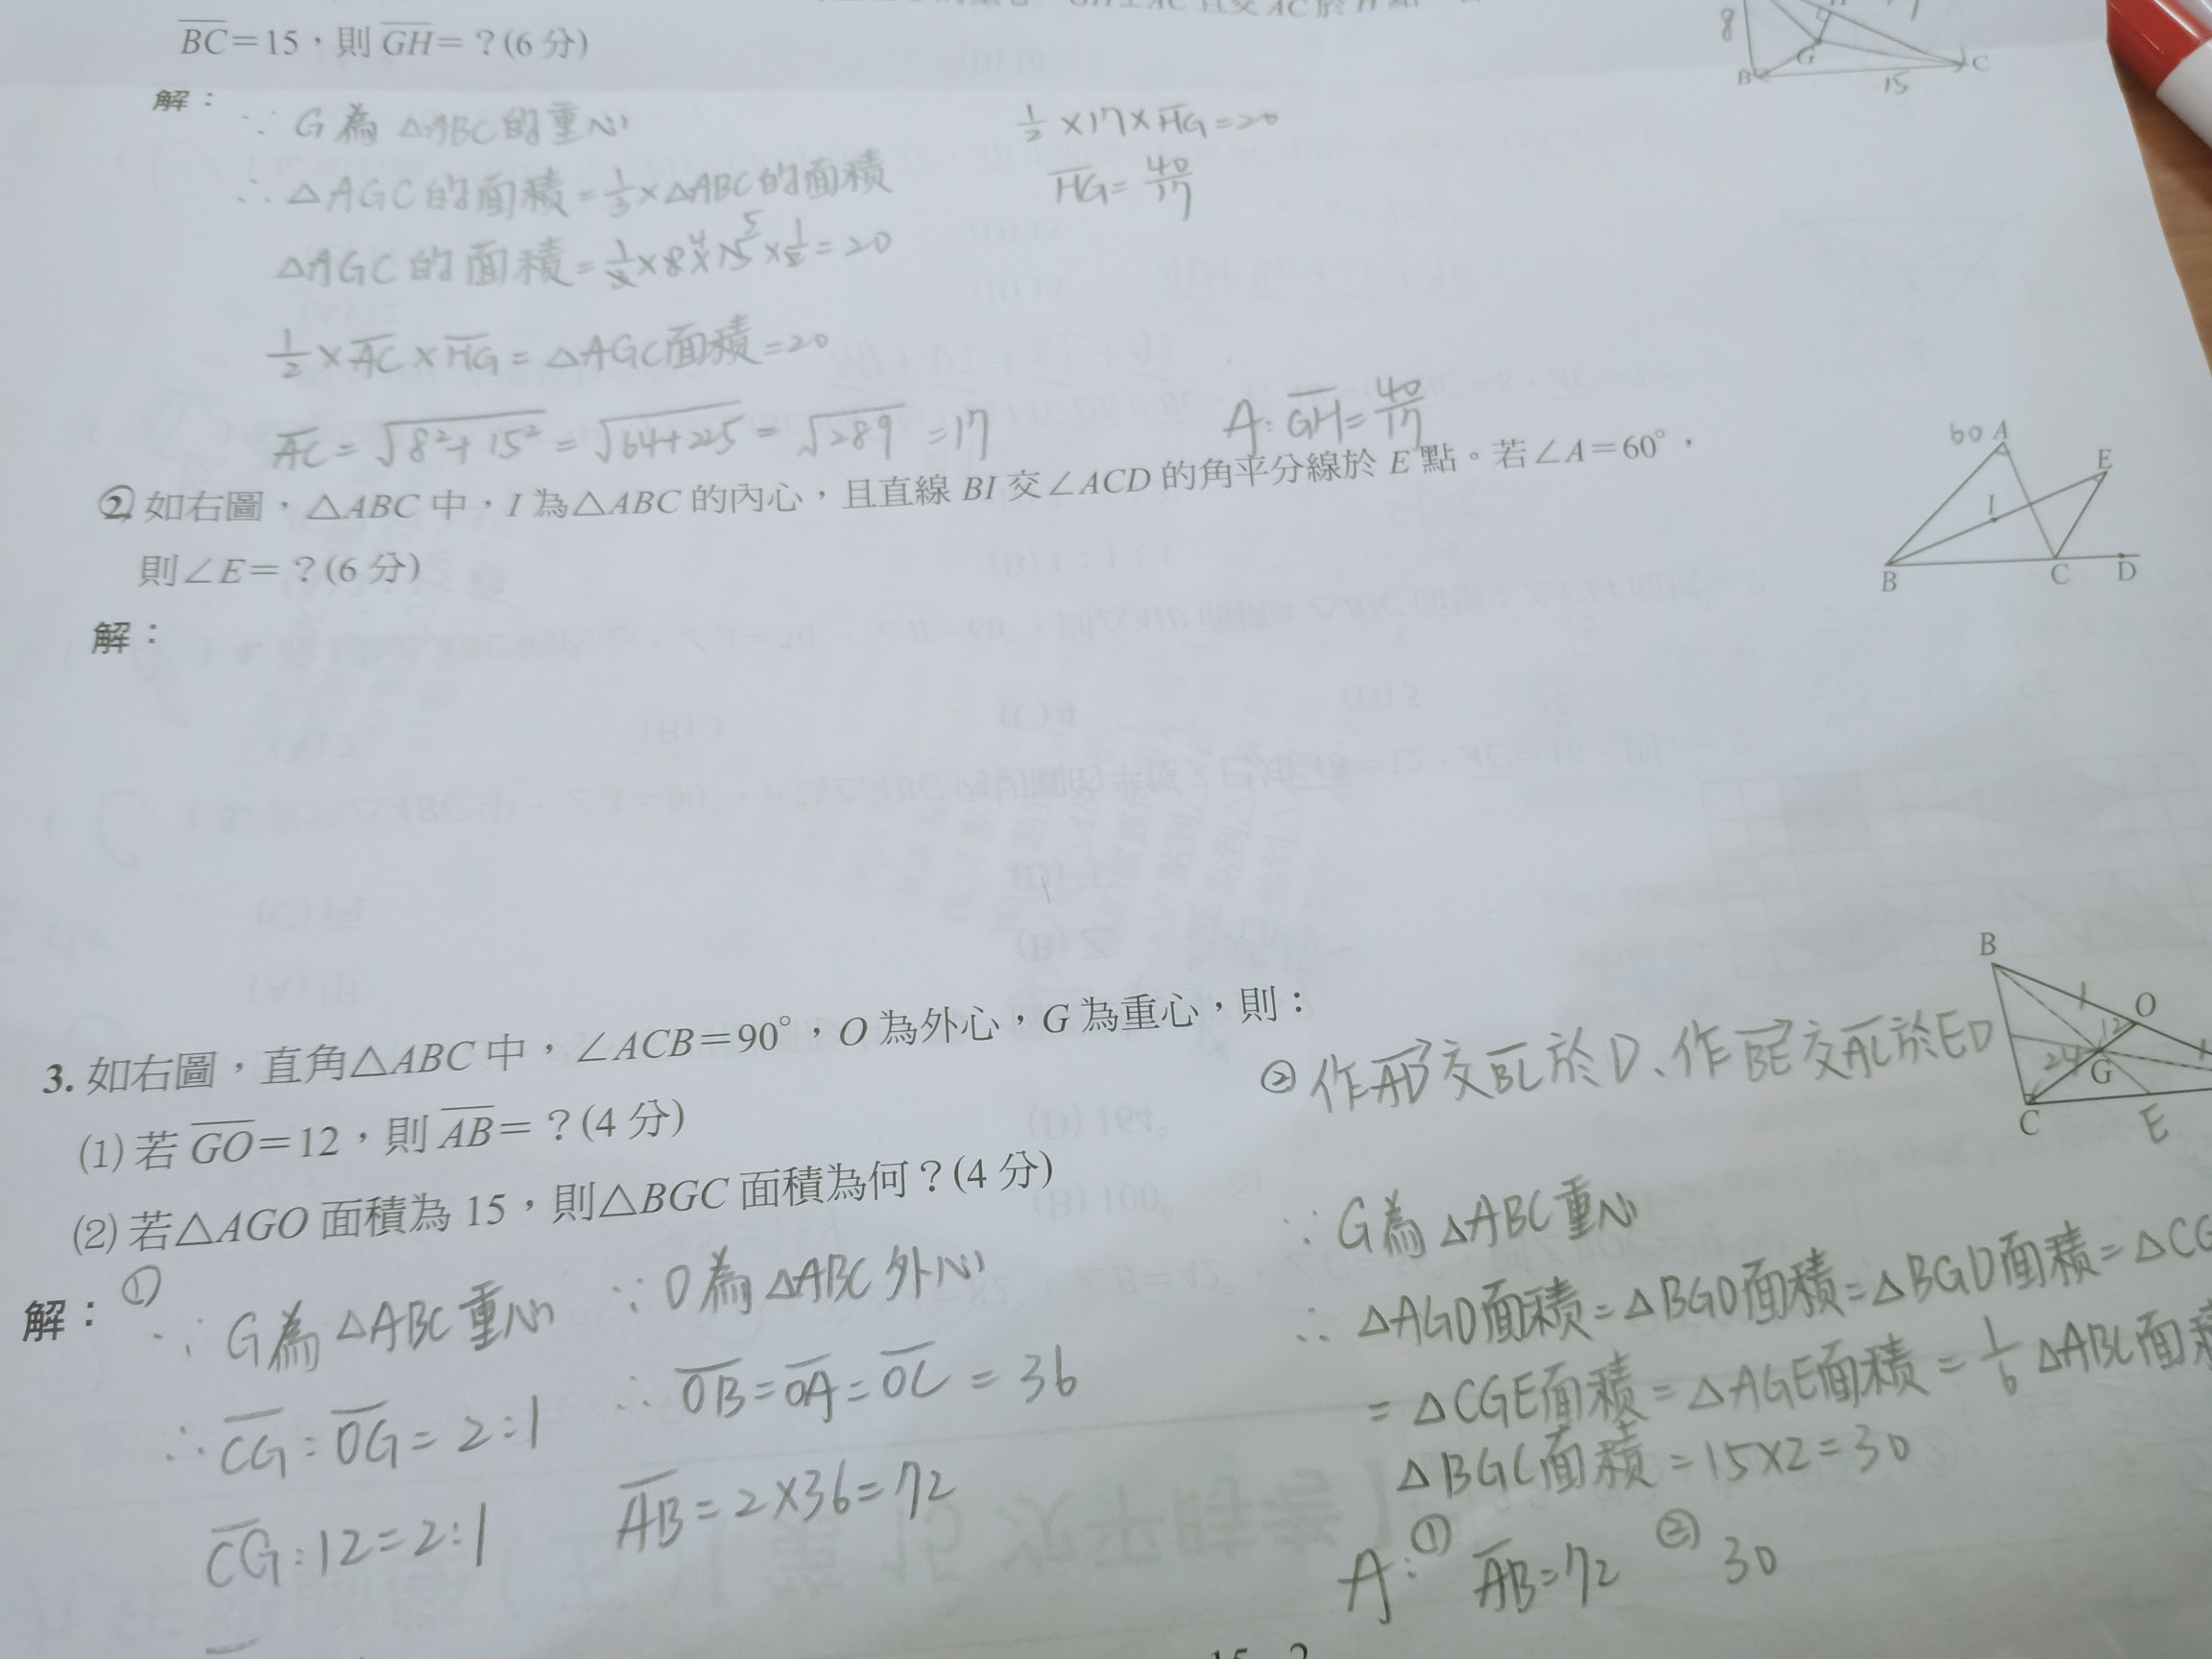 BC=15,則 GH=?(6 分)
8
G
B
15
C
解:
∵ G為△ABC的重心
∴ △AGC的面積=1/3×△ABC的面積
△AGC的面積=1/3×8×15×1/2=20
4
5
1/2×AC×HG=△AGC面積=20
AC=√8²+15²=√64+225=√289=17
1/2×17×HG=20
HG=40/17
A:GH=40/17
2. 如右圖,△ABC 中,I 為△ABC 的內心,且直線 BI 交∠ACD 的角平分線於 E 點。若∠A=60°,
則∠E=?(6 分)
解:
60 A
E
I
B
C
D
3. 如右圖,直角△ABC 中,∠ACB=90°,O 為外心,G 為重心,則:
(1) 若 GO=12,則 AB=?(4 分)
(2) 若△AGO 面積為 15,則△BGC 面積為何?(4 分)
B
O
12
24
G
C
E
解:
①
∵ G為△ABC重心
∴ CG:OG=2:1
CG:12=2:1
∵ O為△ABC外心
∴ OB=OA=OC=36
AB=2×36=72
② 作AD交BC於D、作BE交AC於E
D
∵ G為△ABC重心
∴ △AGO面積=△BGO面積=△BGD面積=△CG
=△CGE面積=△AGE面積=1/6△ABC面積
△BGC面積=15×2=30
A:① AB=72 ② 30
15-2